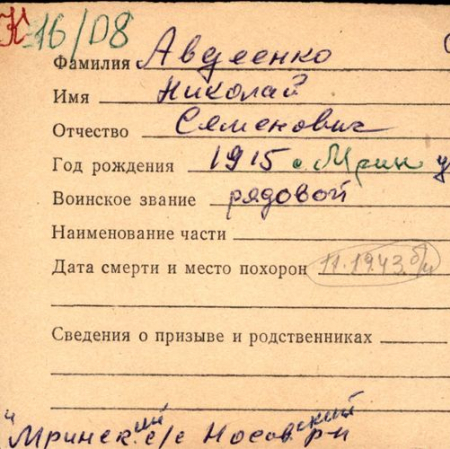 К-16/D8
Фамилия Авдеенко
Имя Николай
Отчество Семенович
Год рождения 1915 с. Мрин
Воинское звание рядовой
Наименование части
Дата смерти и место похорон 11.1943.
Сведения о призыве и родственниках
Мринский с/с Носовский р-н